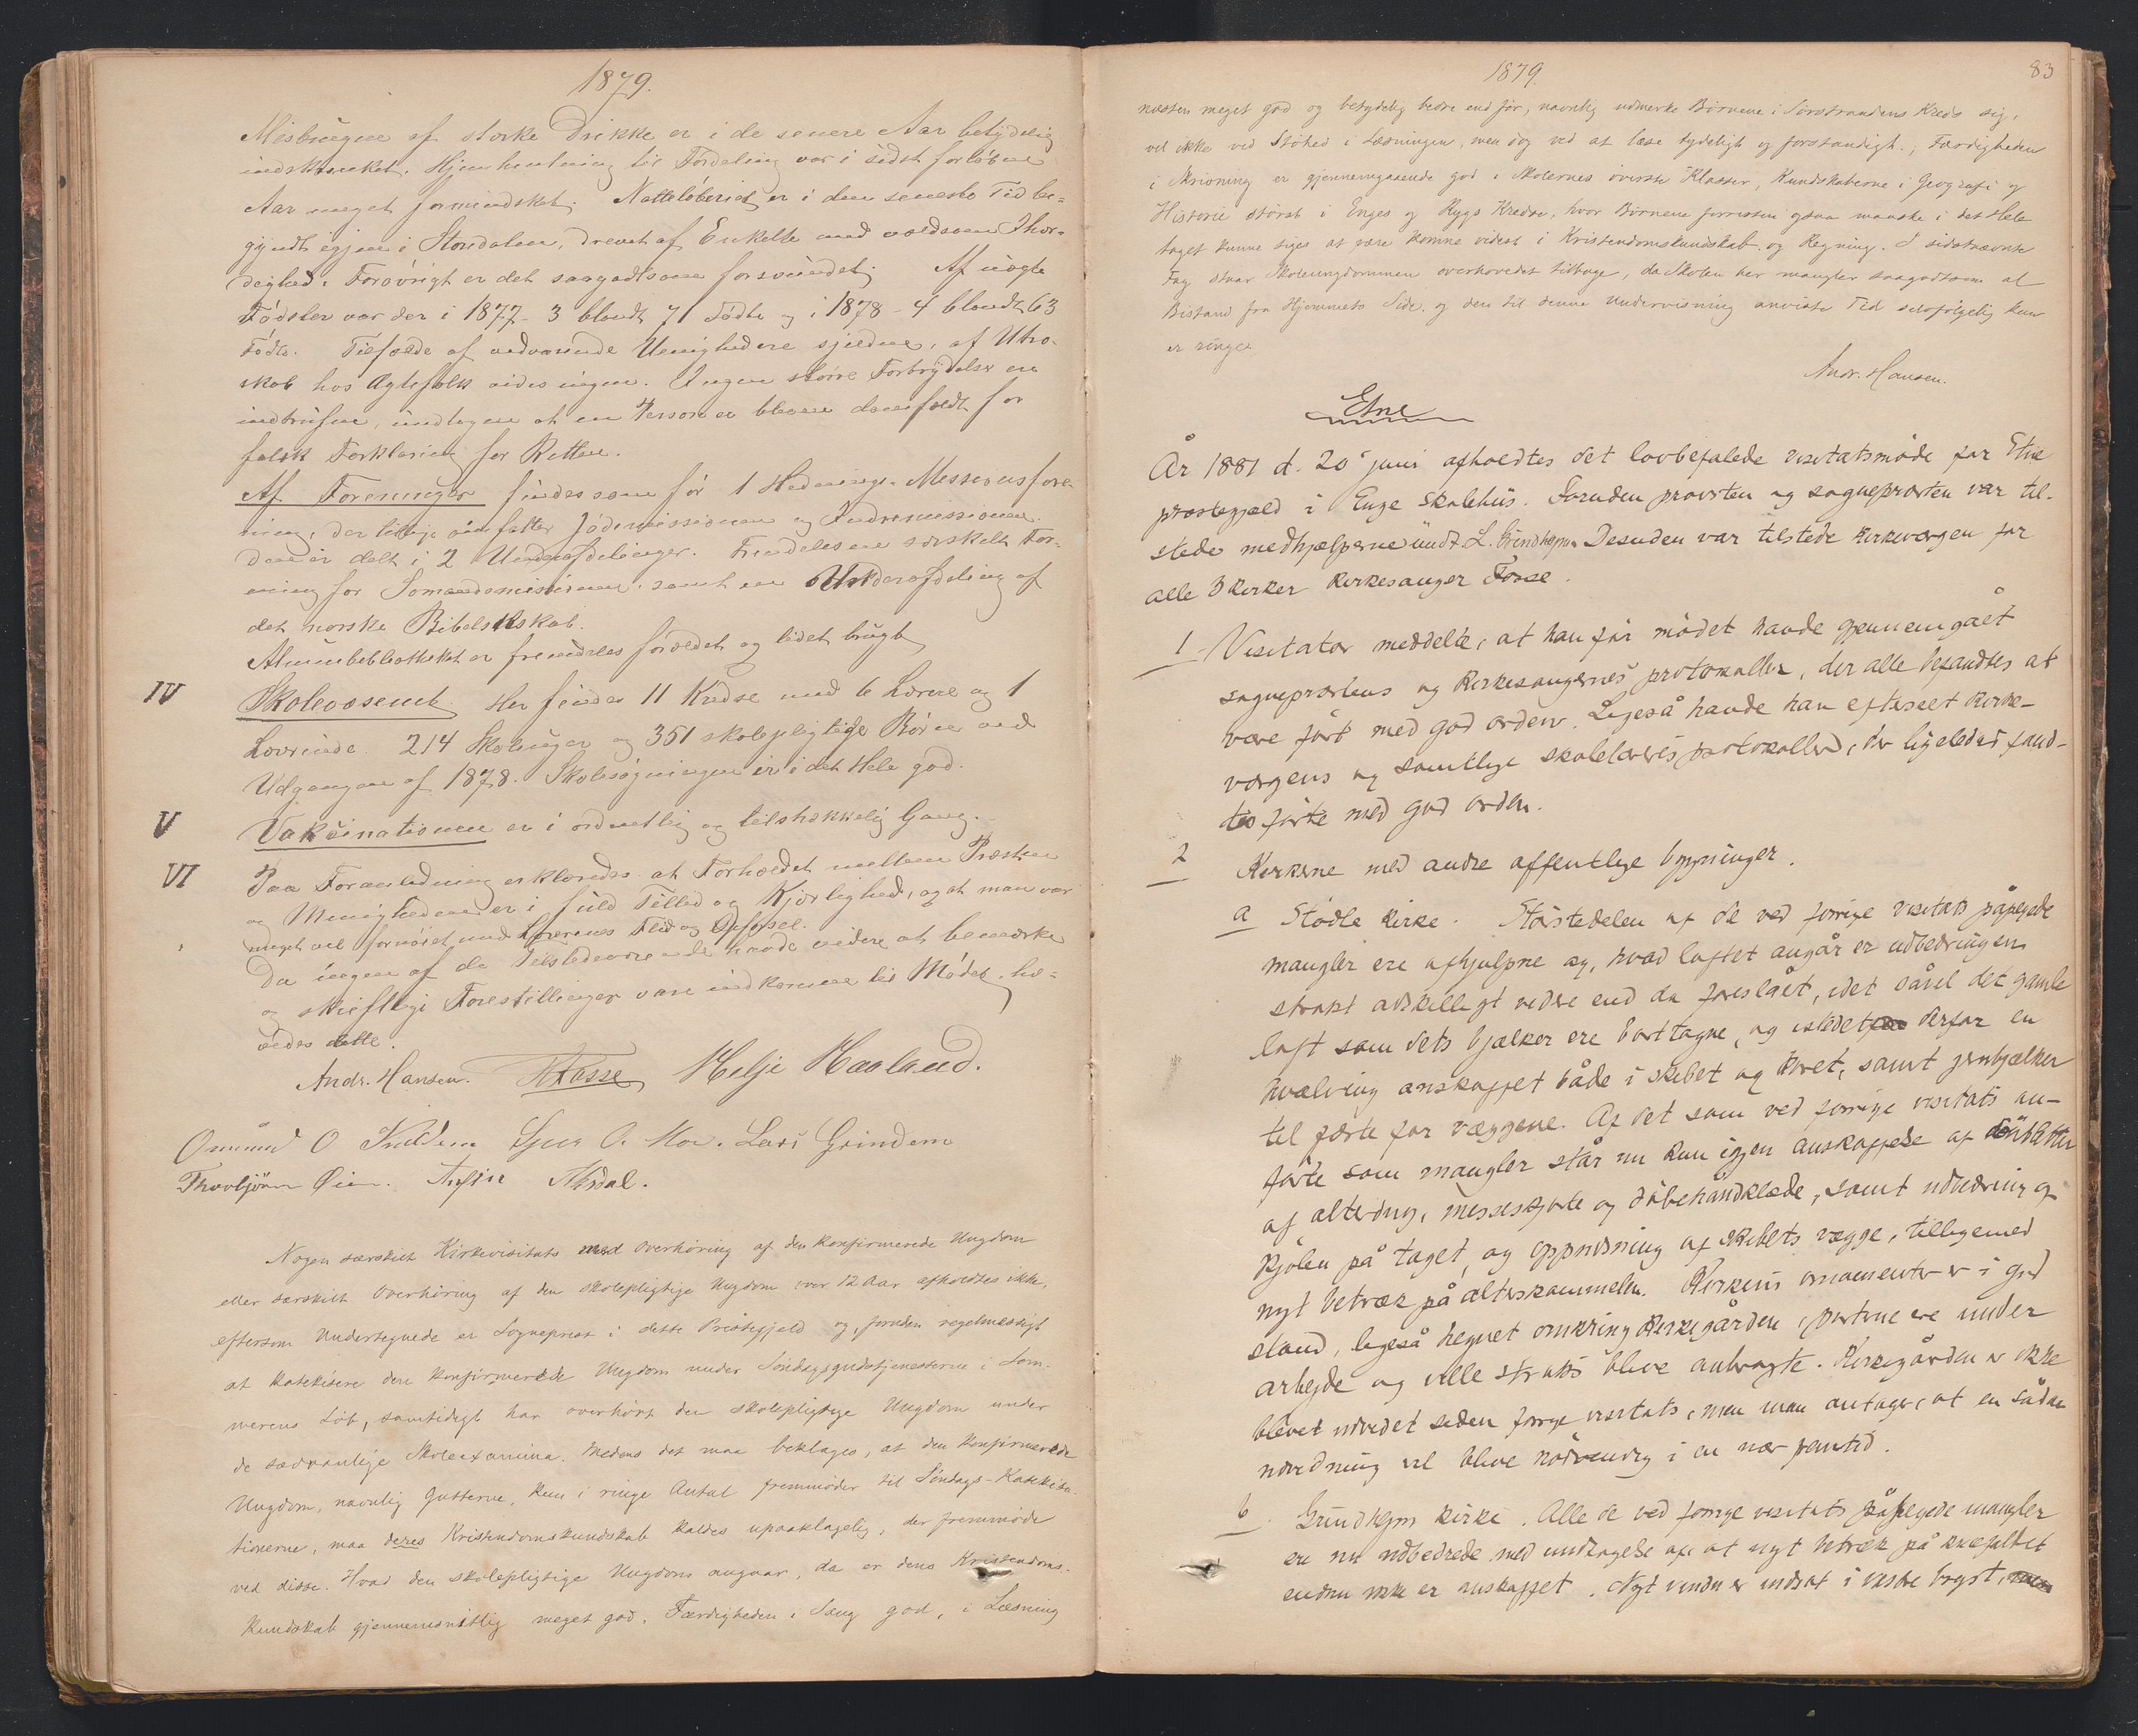 1879.
Misbrugen af stærke Drikke er i de senere Aar betydelig
indskrænket. Hjemhentning til Fordeling var i sidst forløbne
Aar meget formindsket. Natteløberiet er i den seneste Tid be-
gyndt igjen i Stordalen, drevet af Enkelte med voldsom Thor-
dighed. Forøvrigt er det saagodtsom forsvundet. Af uægte
Fødsler var der i 1877 - 3 blandt 71 Fødte og i 1878 - 4 blandt 63
Fødte. Tilfælde af vedvarende Uenighed ere sjeldne, af Utro-
skab hos Ægtefolk vides ingen. Ingen større Forbrydelser ere
indtrufne, undtagen at en Person er bleven domfældt for
falsk Forklaring for Retten.
Af Foreninger findes som før 1 Hednings-Missionsfore-
ning, der tillige omfatter Jødemissionen og Indremissionen.
Den er delt i 2 Underafdelinger. Fremdeles en særskilt For-
ening for Sømandsmissionen, samt en Underafdeling af
det norske Bibelselskab.
Almuebibliotheket er fremdeles forældet og lidet brugt
IV Skolevæsenet. Her findes 11 Kredse med 6 Lærere og 1
Lærerinde. 214 Skoleuger og 351 skolepligtige Børn ved
Udgangen af 1878. Skolesøgningen er i det Hele god.
V Vaksinationen er i ordentlig og tilstrækkelig Gang.
VI Paa Foranledning erklæredes at Forholdet mellem Præsten
og Menighedene er i fuld Tillid og Kjærlighed, og at man var
meget vel fornøiet med Lærernes Flid og Opførsel.
Da ingen af de Tilstedeværende havde videre at bemærke
og skriftlige Forestillinger vare indkomne til Mødet, hæ-
vedes dette.
Andr. Hansen. Fosse Helje Haaland.
Ommund O Kulden Sjur O. Moe. Lars Grindem
Thorbjørn Øien. Anfin Milsdal.
Nogen særskilt Kirkevisitats med Overhøring af den konfirmerede Ungdom
eller særskilt Overhøring af den skolepligtige Ungdom over 12 Aar afholdtes ikke,
eftersom Undertegnede er Sogneprest i dette Prestegjeld og, foruden regelmæssigt
at katekisere den konfirmerede Ungdom under Søndagsgudstjenesterne i Som-
merens Løb, samtidigt har overhørt den skolepligtige Ungdom under
de sædvanlige Skoleexamina. Medens det maa beklages, at den konfirmerede
Ungdom, navnlig Gutterne, kun i ringe Antal fremmøder til Søndags-Katekisa-
tionerne, maa deres Kristendomskundskab kaldes upaaklagelig, der fremmøde
ved disse. Hvad den skolepligtige Ungdom angaar, da er dens Kristendoms-
kundskab gjennemsnitlig meget god, Færdigheden i Sang god, i Læsning
1879. 83
næsten meget god og betydelig bedre end før, navnlig udmerke Børnene i Sørstrandens Kreds sig,
vel ikke ved Støhed i Læsningen, men dog ved at læse tydeligt og forstandigt., Færdigheden
i Skrivning er gjennemgaaende god i Skolernes øverste Klasser, Kundskaberne i Geografi og
Historie størst i Enges og Rygs Kredse, hvor Børnene forresten ogsaa maaske i det Hele
taget kunne siges at være komne videst i Kristendomskundskab og Regning. I sidstnævnte
Fag staar Skoleungdommen overhovedet tilbage, da Skolen her mangler saagodtsom al
Bistand fra Hjemmets Side, og den til denne Undervisning anviste Tid selvfølgelig kun
er ringe
Andr. Hansen.
Etne
År 1881 d. 20de juni afholdtes det lovbefalede visitatsmøde for Etne
præstegjæld i Enge skolehus. Foruden provsten og sognepræsten var til-
stede medhjælperne undt. L. Grindhejm. Desuden var tilstede kirkeværgen for
alle 3 kirker kirkesanger Fosse.
1 Visitator meddelte, at han før mødet havde gjennemgået
sognepræstens og kirkesangernes protokoller, der alle befandtes at
være ført med god orden. Ligeså havde han efterseet kirke-
værgens og samtlige skolelæreres protokoller, der ligeledes fand-
tes førte med god orden.
2 Kirkerne med andre offentlige bygninger.
a Stødle kirke. Størstedelen af de ved forrige visitats påpegede
mangler ere afhjulpne og, hvad loftet angår er udbedringen
strakt adskilligt videre end da foreslået, idet såvel det gamle
loft som dets bjælker ere borttagne, og istedet derfor en
hvælving anskaffet både i skibet og koret, samt jernbjælker
til fæste for væggene. Af det som ved forrige visitats an-
førte som mangler står nu kun igjen anskaffelse af
af alterdug, messeskjorte og dåbehåndklæde, samt udbedring af
kjølen på taget, og oppudsning af skibets vægge, tilligemed
nyt betræk på alterskammelen. Kirkens ornamenter er i god
stand, ligeså hegnet omkring kirkegården, portene ere under
arbejde og ville straks blive anbragte. Kirkegården er ikke
blevet udvidet siden forrige visitats, men man antager, at en sådan
udvidning vil blive nødvendig i en nær femtid.
b Grindhejms kirke. Alle de ved forrige visitats påpegede mangler
ere nu udbedrede med undtagelse af at nyt betræk på knæfaldet
endnu ikke er anskaffet. Nyt vindu er indsat i vestre bryst,